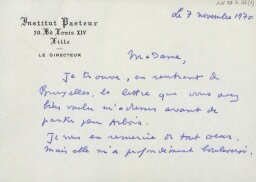 Institut Pasteur
20. Bd Louis XIV
Lille
LE DIRECTEUR
Le 7 novembre 1970
Madame,
Je trouve, en rentrant de
Bruxelles, la lettre que vous avez
bien voulu m'adresser avant de
partir pour Arbois.
Je vous en remercie de tout coeur.
Mais elle m'a profondément bouleversé.